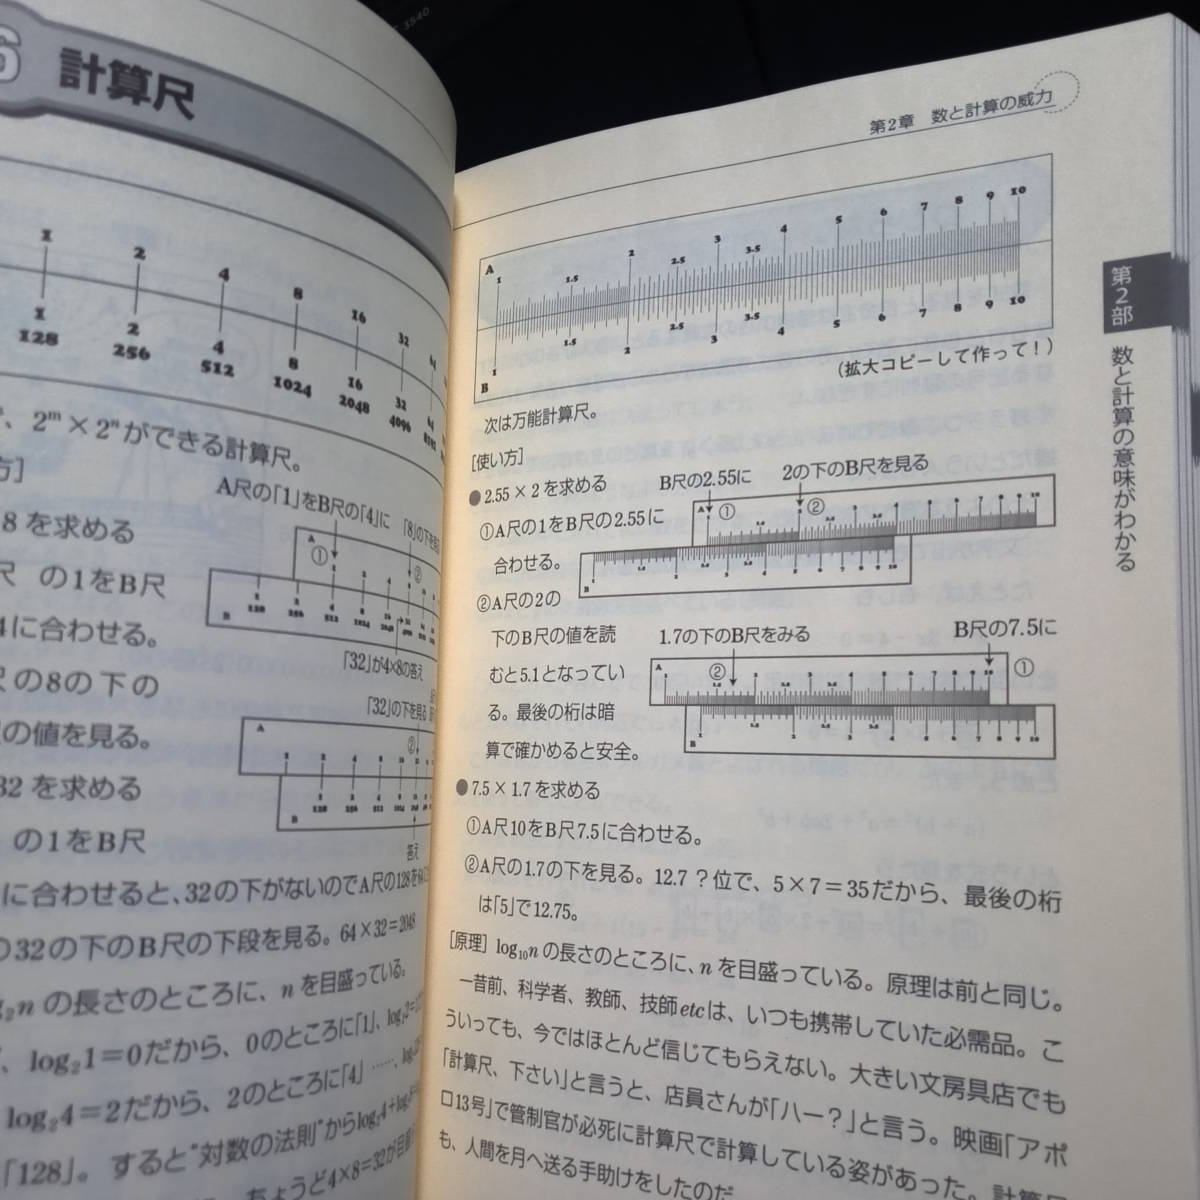 6 計算尺
1 2 4 8 16 32 64
1 2 4 8 16 32 64
128 256 512 1024 2048 4096 8192
、2ᵐ×2ⁿができる計算尺。
方]
8を求める
尺 の1をB尺
4に合わせる。
尺の8の下の
の値を見る。
32を求める
の1をB尺
A尺の「1」をB尺の「4」に
「8」の下を見る
① ②
A
B
「32」が4×8の答え
「32」の下を見る
②
A
B
答え
に合わせると、32の下がないのでA尺の128を
の32の下のB尺の下段を見る。64×32=2048
g₂nの長さのところに、nを目盛っている。
、log₂1=0だから、0のところに「1」、log₂2=
log₂4=2だから、2のところに「4」……、
「128」。すると"対数の法則"からlog₂4+log₂
ちょうど4×8=32が目盛
第2章 数と計算の威力
A 1 1.5 2 2.5 3 3.5 4 5 6 7 8 9 10
B 1 1.5 2 2.5 3 3.5 4 5 6 7 8 9 10
(拡大コピーして作って!)
次は万能計算尺。
[使い方]
●2.55×2を求める
①A尺の1をB尺の2.55に
合わせる。
②A尺の2の
下のB尺の値を読
むと5.1となってい
る。最後の桁は暗
算で確かめると安全。
B尺の2.55に
2の下のB尺を見る
A ① ②
B
1.7の下のB尺をみる
B尺の7.5に
A ② ①
B
●7.5×1.7を求める
①A尺10をB尺7.5に合わせる。
②A尺の1.7の下を見る。12.7?位で、5×7=35だから、最後の桁
は「5」で12.75。
[原理] log₁₀nの長さのところに、nを目盛っている。原理は前と同じ。
一昔前、科学者、教師、技師etcは、いつも携帯していた必需品。こ
ういっても、今ではほとんど信じてもらえない。大きい文房具店でも
「計算尺、下さい」と言うと、店員さんが「ハー?」と言う。映画「アポ
ロ13号」で管制官が必死に計算尺で計算している姿があった。計算尺
も、人間を月へ送る手助けをしたのだ
第2部
数と計算の意味がわかる
3540